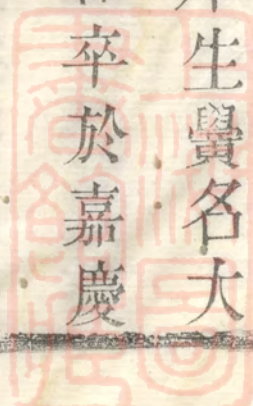 生黌名大
卒於嘉慶